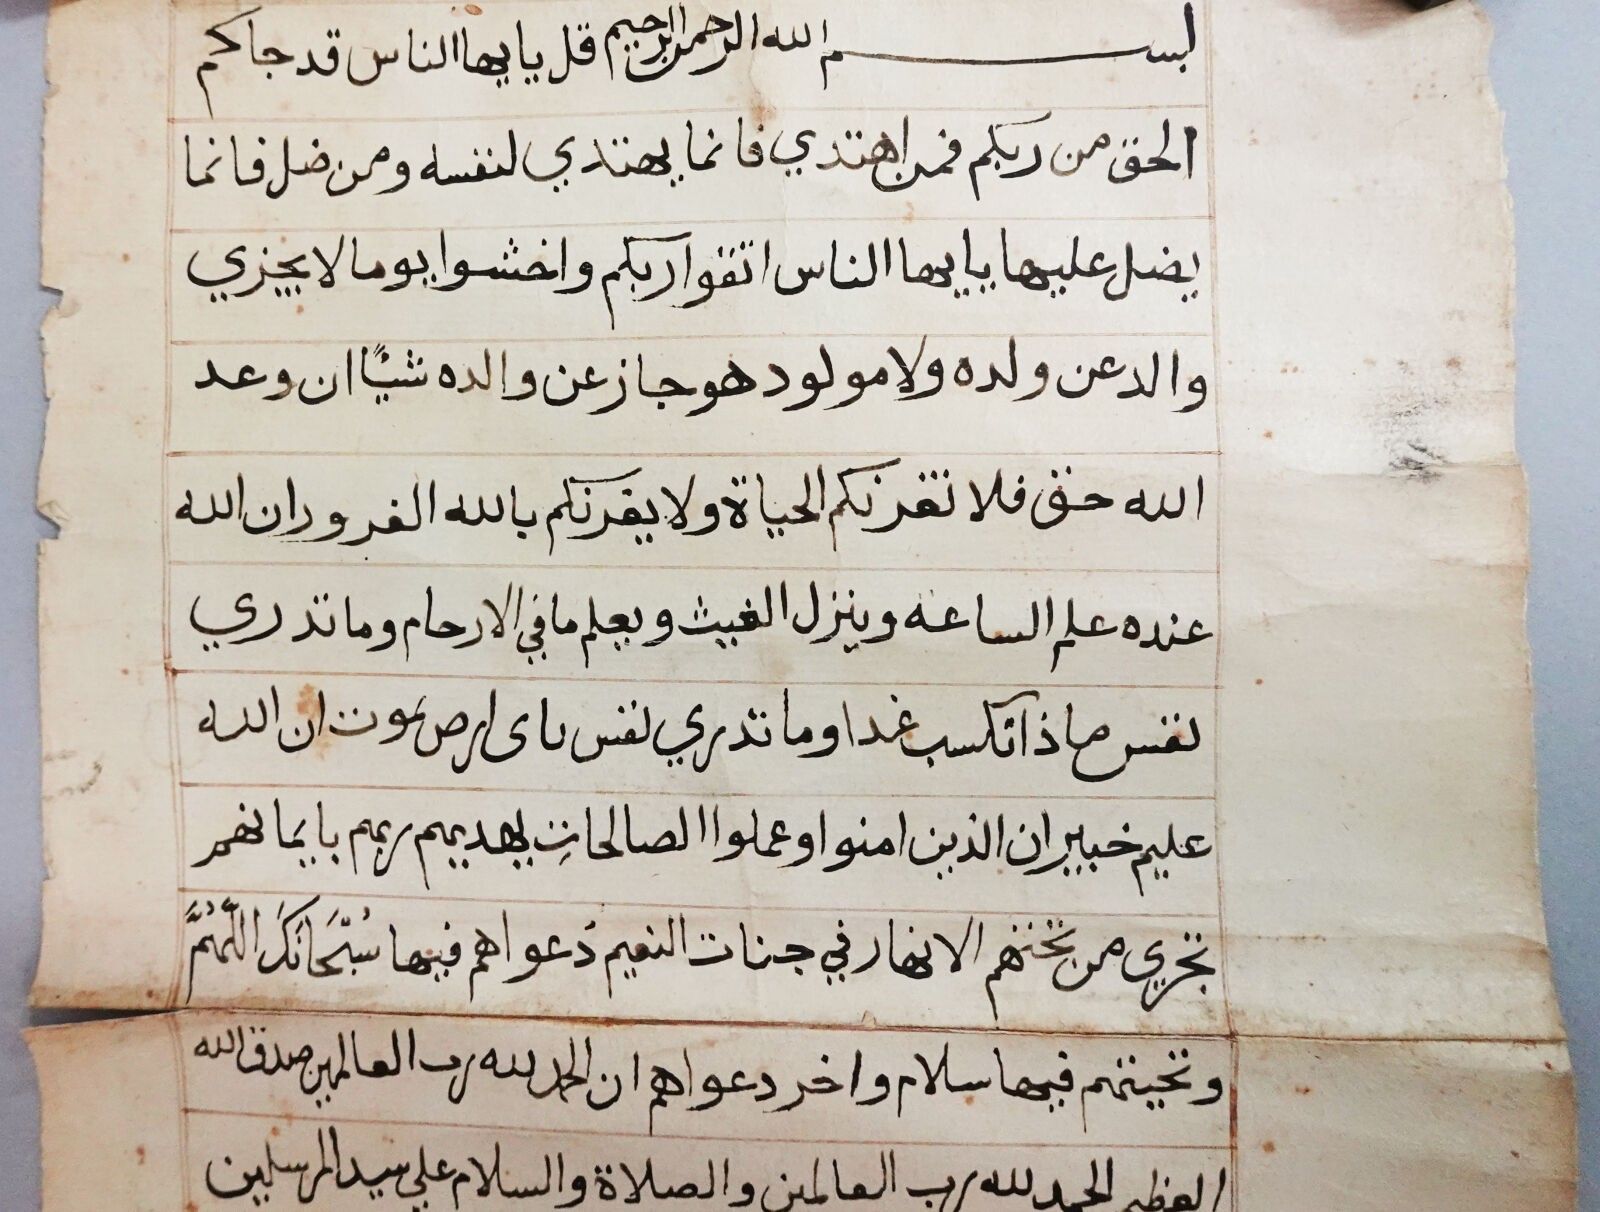 بسم الله الرحمن الرحيم قل يايها الناس قد جاكم
الحق من ربكم فمن اهتدي فانما يهتدي لنفسه ومن ضل فانما
يضل عليها يايها الناس اتقوا ربكم واخشوا يوما لا يجزي
والد عن ولده ولا مولود هو جاز عن والده شئًا ان وعد
الله حق فلا تغرنكم الحياة ولا يغرنكم بالله الغرور ان الله
عنده علم الساعه وينزل الغيث ويعلم ما في الارحام وما تدري
نفس ماذا تكسب غدا وما تدري نفس باى ارض تموت ان الله
عليم خبير ان الذين امنوا وعملوا الصالحاتِ يهديهم ربهم بايمانهم
تجري من تحتهم الانهار في جنات النعيم دَعواهم فيها سُبْحَانَكَ اللّٰهُمَّ
وتحيتهم فيها سلام واخر دعواهم ان الحمد لله رب العالمين صدق الله
العظيم الحمد لله رب العالمين والصلاة والسلام علي سيد المرسلين